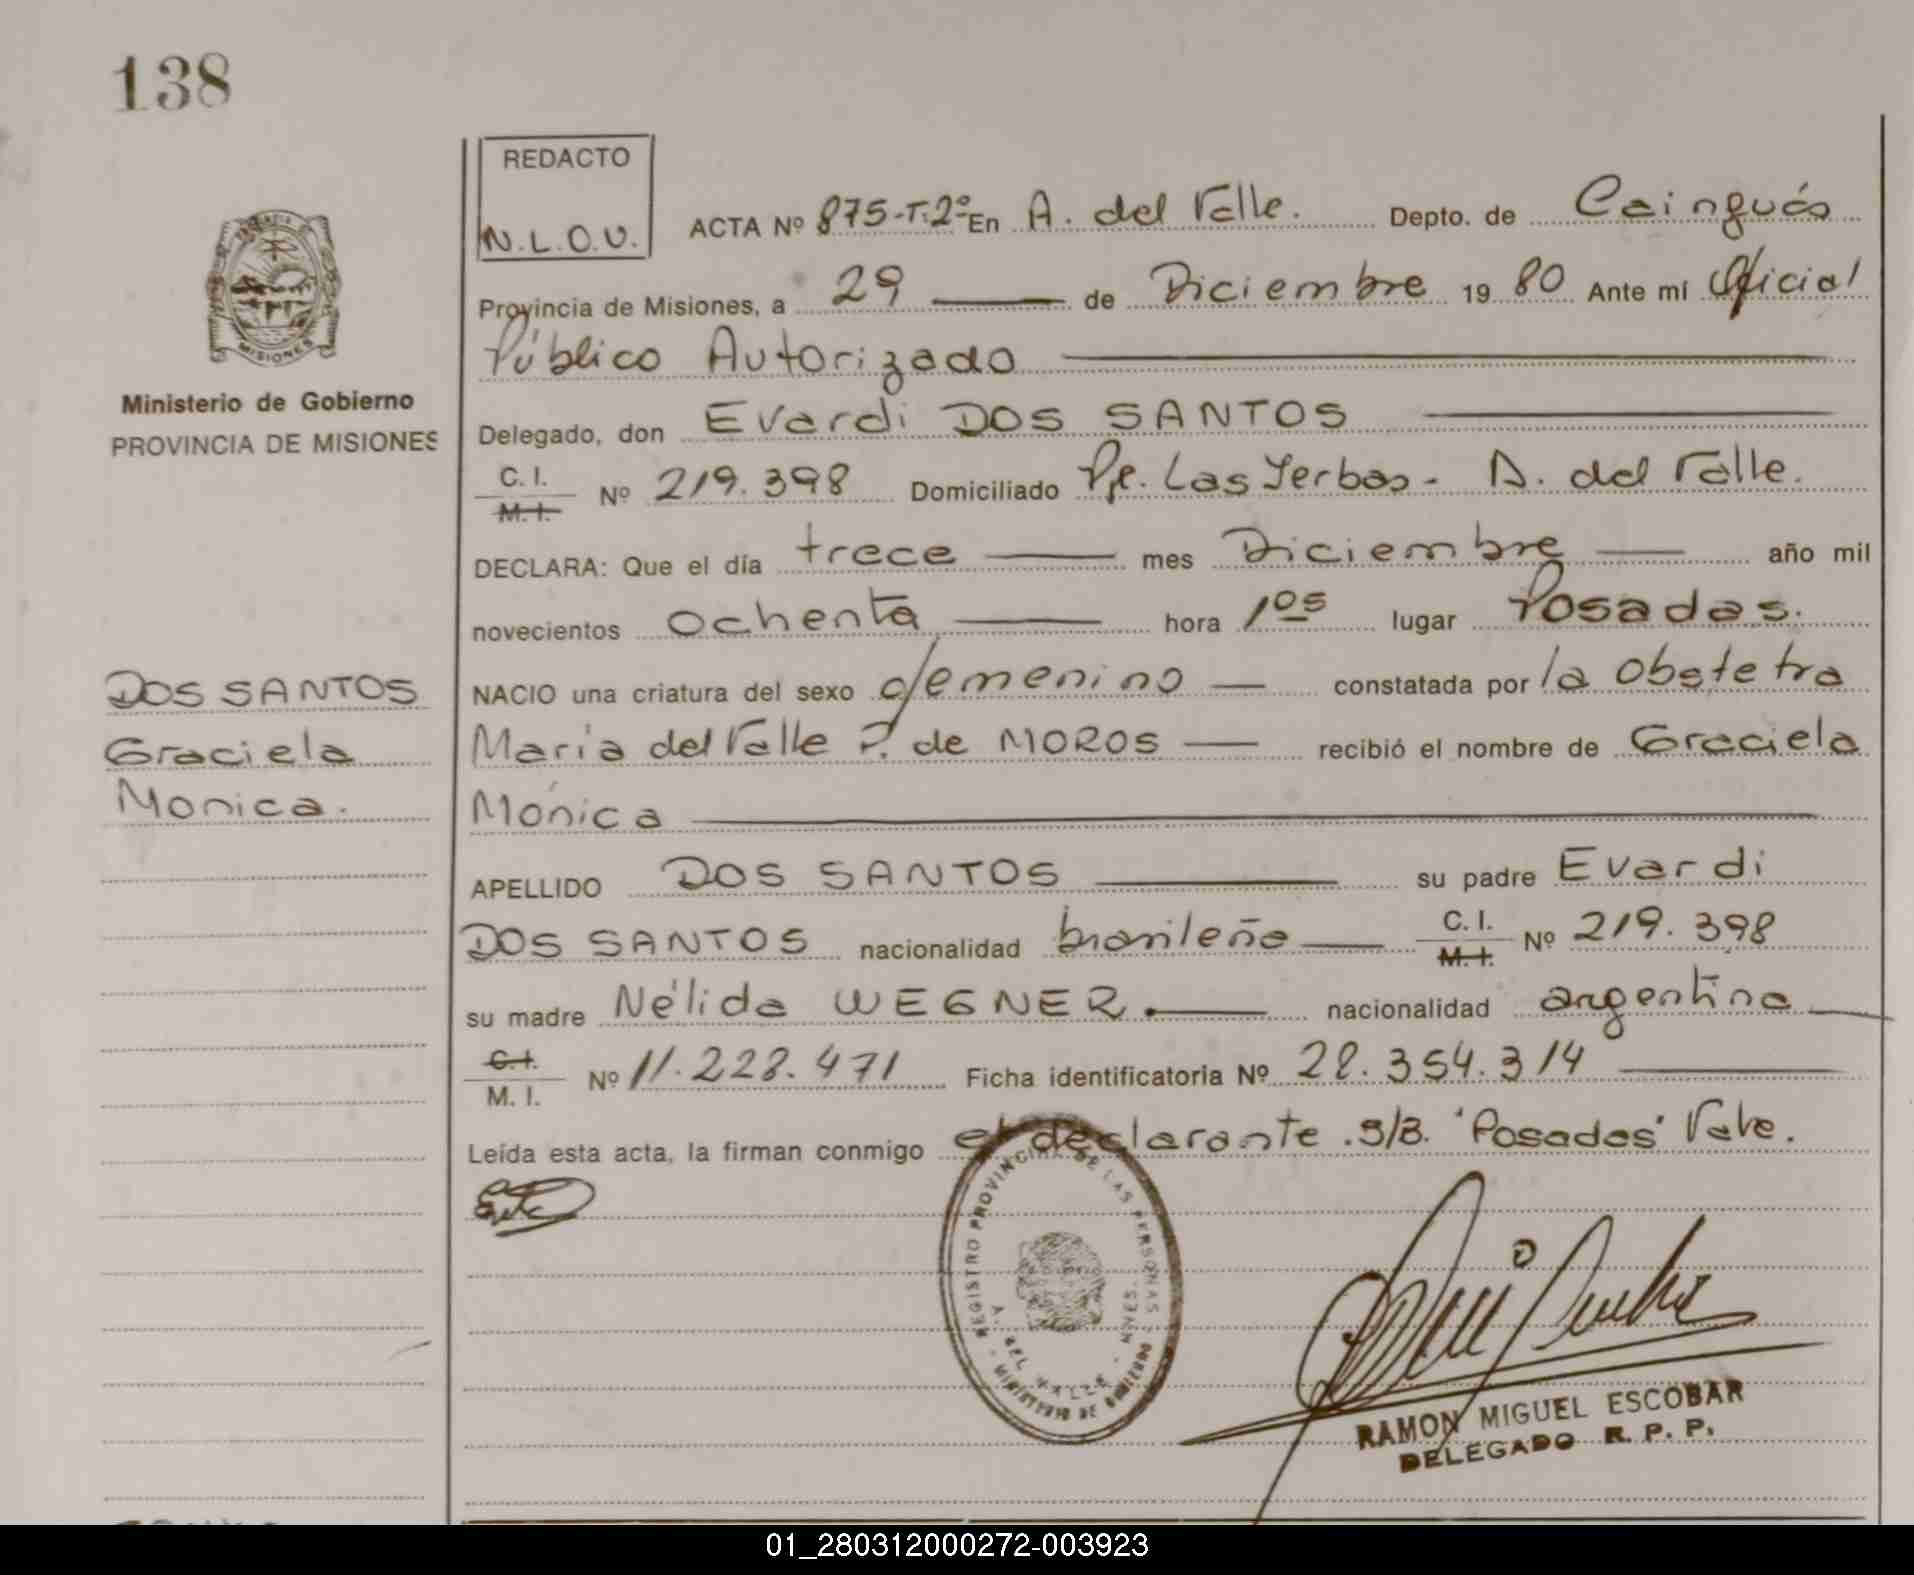 138
REDACTO
N.L.O.V.
ACTA Nº 875-T:2º En A. del Valle. Depto. de Cainguás
Provincia de Misiones, a 29 de Diciembre 1980 Ante mí Oficial
Público Autorizado
MISIONES
Ministerio de Gobierno
PROVINCIA DE MISIONES
Delegado, don Evardi DOS SANTOS
C. I.
M. I.
Nº 219.398 Domiciliado Pje. Las Yerbas - A. del Valle.
DECLARA: Que el día trece mes Diciembre año mil
novecientos ochenta hora 1 05 lugar Posadas.
NACIO una criatura del sexo femenino constatada por la Obstetra
María del Valle P. de MOROS recibió el nombre de Graciela
Mónica
DOS SANTOS
Graciela
Monica.
APELLIDO DOS SANTOS su padre Evardi
DOS SANTOS nacionalidad brasileña C. I. M. I. Nº 219.398
su madre Nélida WEGNER. nacionalidad argentina
C. I.
M. I.
Nº 11.228.471 Ficha identificatoria Nº 28.354.314
Leída esta acta, la firman conmigo el declarante .S/B. "Posadas" Vale.
REGISTRO PROVINCIAL DE LAS PERSONAS
MINISTERIO DE GOBIERNO
A. DEL VALLE - MNES.
RAMON MIGUEL ESCOBAR
DELEGADO R. P. P.
01_280312000272-003923